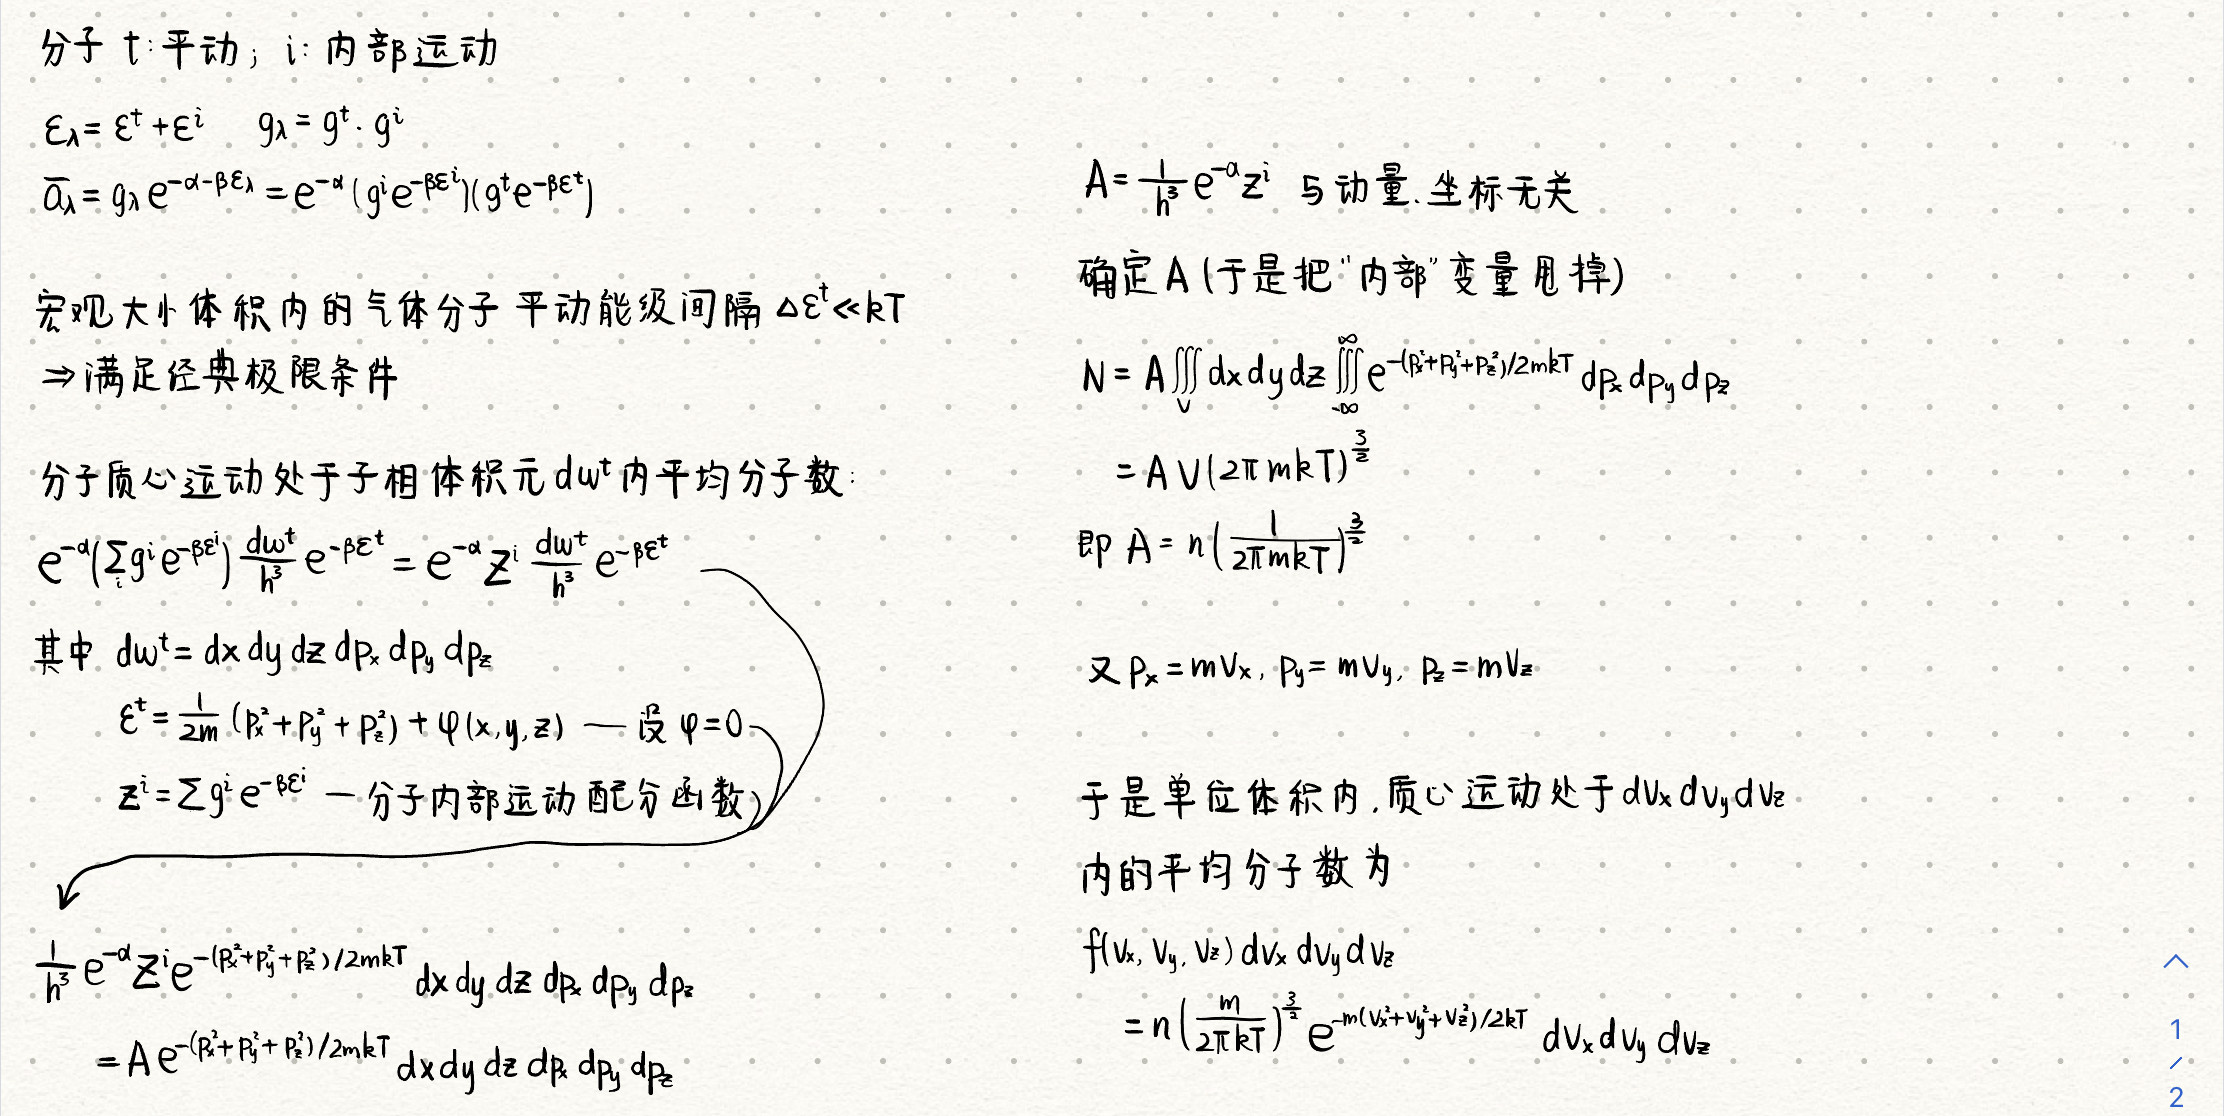 分子 t:平动; i: 内部运动
ελ = ε^t + ε^i  gλ = g^t · g^i
āλ = gλ e^(-α-βελ) = e^(-α) (g^i e^(-βε^i))(g^t e^(-βε^t))
宏观大小体积内的气体分子 平动能级间隔 Δε^t ≪ kT
⇒ 满足经典极限条件
分子质心运动处于子相体积元 dw^t 内平均分子数:
e^(-α) (∑_i g^i e^(-βε^i)) dw^t/h³ e^(-βε^t) = e^(-α) Z^i dw^t/h³ e^(-βε^t)
其中 dw^t = dx dy dz dpx dpy dpz
ε^t = 1/2m (px² + py² + pz²) + φ(x, y, z) — 设 φ=0
z^i = ∑ g^i e^(-βε^i) — 分子内部运动配分函数
1/h³ e^(-α) Z^i e^(-(px²+py²+pz²)/2mkT) dx dy dz dpx dpy dpz
= A e^(-(px²+py²+pz²)/2mkT) dx dy dz dpx dpy dpz
A = 1/h³ e^(-α) z^i 与动量、坐标无关
确定 A (于是把"内部"变量甩掉)
N = A ∭_V dx dy dz ∭_{-∞}^{∞} e^(-(px²+py²+pz²)/2mkT) dpx dpy dpz
= A V (2π mkT)^(3/2)
即 A = n (1/2πmkT)^(3/2)
又 px = mVx, py = mVy, pz = mVz
于是单位体积内,质心运动处于 dVx dVy dVz
内的平均分子数为
f(Vx, Vy, Vz) dVx dVy dVz
= n (m/2πkT)^(3/2) e^(-m(Vx²+Vy²+Vz²)/2kT) dVx dVy dVz
1
/
2